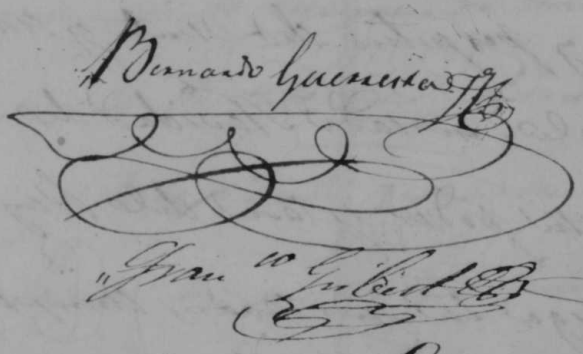 Bernardo Guerrero
Fran co Gilbert